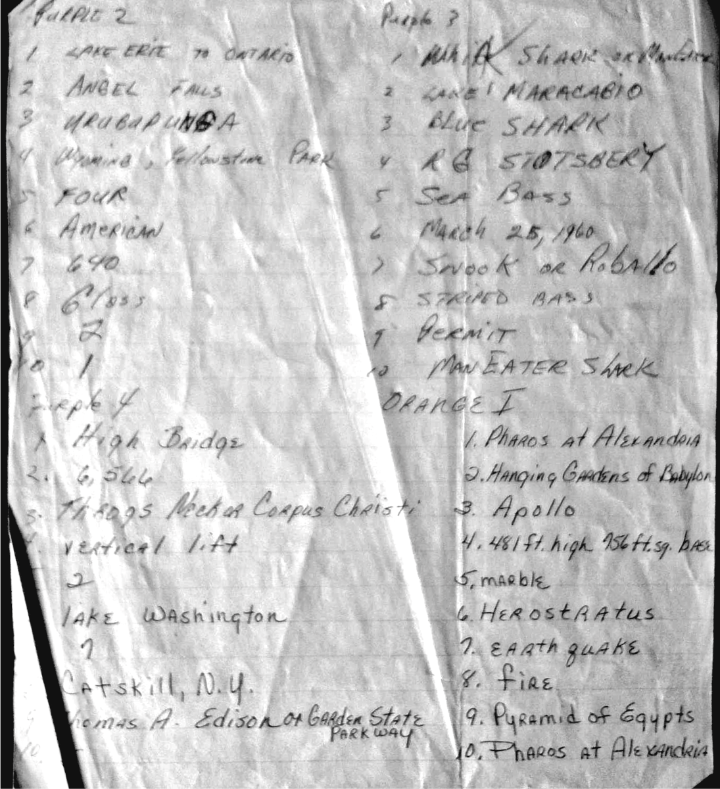 PURPLE 2
1 LAKE ERIE TO ONTARIO
2 ANGEL FALLS
3 URUBUPUNGA
4 Wyoming, Yellowstone PARK
5 FOUR
6 AmericAN
7 640
8 Gloss
9 2
10 1
Purple 3
1 MAKIA Shark or ManEater
2 LAKE MARACABIO
3 BLUE SHARK
4 R G STOTSBERY
5 SeA BASS
6 MARCH 25, 1960
7 SNOOK OR RobAllo
8 STRIPED BASS
9 PERMIT
10 MAN EATER ShARK
Purple 4
1. High Bridge
2. 6,566
3. Throgs Neck or Corpus Christi
4. vertical lift
2
lAKE WAShington
7
CATSKILL, N.Y.
9 Thomas A. Edison or GARDEN STATE
PARKWAY
10.
ORANGE I
1. PHAROS AT AlEXANDRIA
2. HANGING GARDENS of BABylon
3. Apollo
4. 481 ft. high 756 ft. sq. base
5. mARblE
6. HEROSTRATUS
7. EARTh quAKE
8. fiRE
9. PyRAMid of EgypTs
10. PHAROS AT AlEXANDRIA